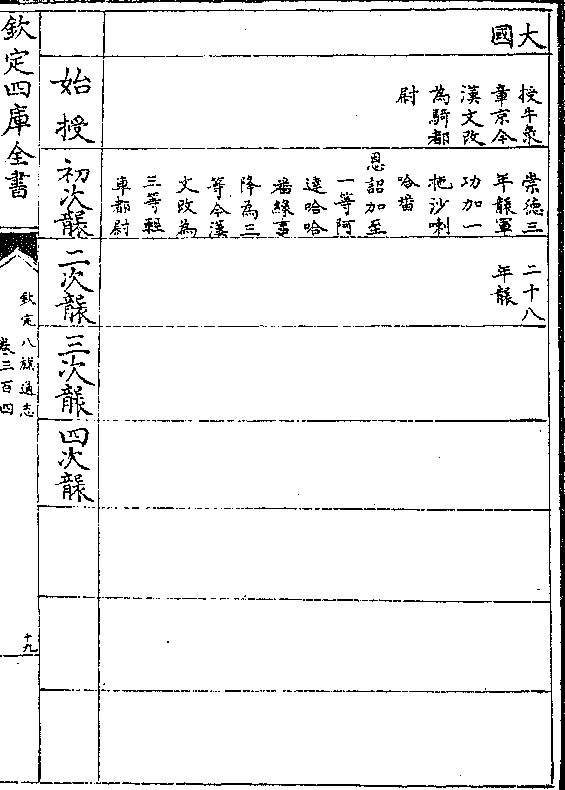 大
國
授牛彔
章京今
漢文改
為騎都
尉
崇德三
年襲軍
功加一
拖沙喇
哈番
恩詔加至
一等阿
達哈哈
番緣事
降為三
等今漢
文改為
三等輕
車都尉
二十八
年襲
始授
初次襲
二次襲
三次襲
四次襲
欽定四庫全書
欽定八旗通志
卷三百四
十九